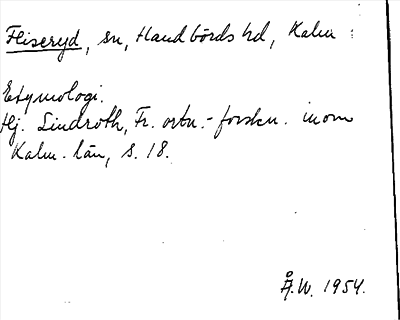 Fliseryd, sn, Handbörds hd, Kalm :
Etymologi.
Hj. Lindroth, Fr. ortn.-forskn. inom
Kalm. län, s. 18.
Å.W. 1954.